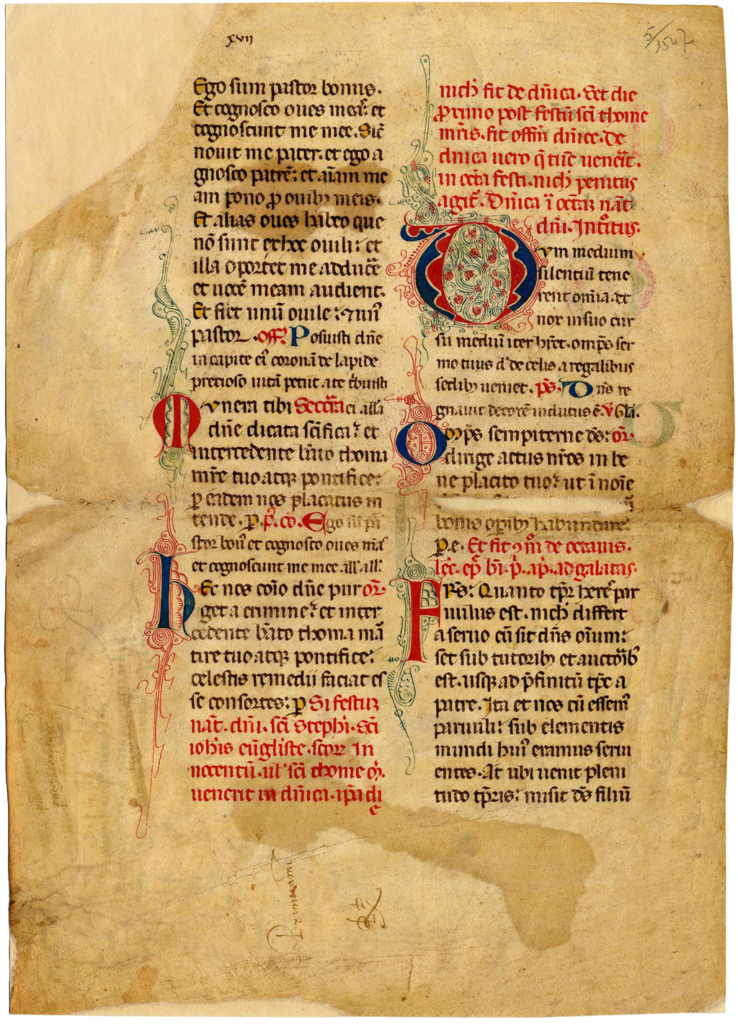 xvii
5/1547
Ego sum pastor bonus.
Et cognosco oues meas: et
cognoscunt me mee. Sic̄
nouit me pater. et ego a
gnosco patrē: et aīam me
am pono ꝓ ouibꝫ meis.
Et alias oues habeo que
nō sunt ex hoc ouili: et
illa oportet me adduce
et uocē meam audient.
Et fiet unū ouile: ⁊ un᷒
pastor. off. Posuisti dn̄e
in capite ei᷒ coronā de lapide
precioso uitā petiit a te tbuisti
Munera tibi Secreta
dn̄e dicata sc̄ifica: et
intercedente bt̄o thoma
mr̄e tuo atqꝫ pontifice:
ꝑ eadem nos placatus in
tende. ꝑ. co. Ego sū pa
stor bon᷒ et cognosco oues meas
et cognoscunt me mee. all'. all'.
hec nos cōio dn̄e pur or̄.
get a crimine: et inter
cedente bt̄o thoma mā
tire tuo atqꝫ pontifice:
celestis remedii faciat es
se consortes: ꝑ Si festuꝫ
nat̄. dn̄i. sc̄i stephi. sc̄i
iohis euāgliste. scōꝝ in
nocentū. ul' sc̄i thome m̄.
uenerit in dn̄ica. ip̄a di
e
nich̄ fit de dn̄ica. Set die
proximo post festū sc̄i thome
mr̄is. fit offm̄ dn̄ice. De
dn̄ica uero q̄ tūc uenerit.
in octā festi. nich̄ penitus
agit᷒. Dn̄ica ī octaꝫ nat̄
dn̄i. Introitus.
Dvm medium
silentiū tene
rent om̄ia. et
nox in suo cur
su medium iter hr̄et. om̄ps ser
mo tuus dn̄e de celis a regalibus
sedibꝫ uenit. ps. Dns re
gnauit decorē indutus ē. v̄ Gla.
Om̄ps sempiterne ds: or̄.
dirige actus nr̄os in be
ne placito tuo: ut ī noīe
bonis opibꝫ habundare:
ꝑ. e. Et fit ꝯm̄ de octauis.
lec̄. ep̄. bī. p̄. ap̄. ad galatas.
FRs: Quanto tp̄r heres par
uulus est. nich̄ differt
a seruo cū sit dn̄s om̄ium:
set sub tutoribꝫ et auctorib᷒
est. usqꝫ ad p̄finitū tp̄s a
patre. Ita et nos cū essem᷒
paruuli: sub elementis
mundi hui᷒ eramus serui
entes. At ubi uenit pleni
tudo tp̄ris: misit ds filiū